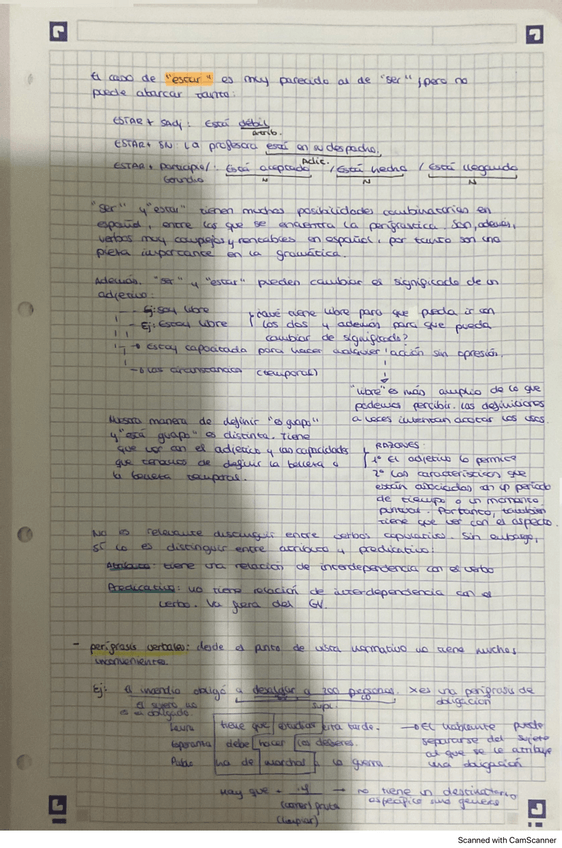 El caso de "estar" es muy parecido al de "ser", pero no
puede abarcar tanto:
ESTAR + SAdj: Está débil
Atrib.
ESTAR + SN: La profesora está en su despacho.
Adic.
ESTAR + Participio/: Está aceptado / Está hecha / Está llegando
Gerundio N N N
"Ser" y "estar" tienen muchas posibilidades combinatorias en
español, entre los que se encuentra la perifrástica. Son, además,
verbos muy complejos y rentables en español, por tanto son una
pieza importante en la gramática.
Además, "ser" y "estar" pueden cambiar el significado de un
adjetivo:
Ej: Soy libre
Ej: Estoy libre
¿Qué tiene libre para que pueda ir con
los dos y además para que pueda
cambiar de significado?
→ Estoy capacitada para hacer cualquier acción sin opresión.
→ Las circunstancias (temporal)
"libre" es más amplio de lo que
podemos percibir. Las definiciones
a veces intentan acotar los usos.
Nuestra manera de definir "es guapo"
y "está guapo" es distinta. Tiene
que ver con el adjetivo y las capacidades
que tenemos de definir la belleza o
la belleza temporal.
RAZONES:
1º El adjetivo lo permite
2º Las características que
están asociadas en un periodo
de tiempo o un momento
puntual. Por tanto, también
tiene que ver con el aspecto.
No es relevante distinguir entre verbos copulativos. Sin embargo,
sí lo es distinguir entre atributo y predicativo:
Atributo: tiene una relación de interdependencia con el verbo
Predicativo: no tiene relación de interdependencia con el
verbo. Va fuera del GV.
- perífrasis verbales: desde el punto de vista normativo no tiene muchos
inconvenientes.
Ej: El incendio obligó a desalojar a 200 personas. X es una perífrasis de
obligación
El sujeto no
es el obligado.
Supl.
Laura tiene que estudiar esta tarde.
Esperanza debe hacer los deberes.
Pablo ha de marchar a la guerra
→ El hablante puede
separarse del sujeto
al que se le atribuye
una obligación
Hay que + → no tiene un destinatario
específico sino general
(comer) fruta
(limpiar)
Scanned with CamScanner